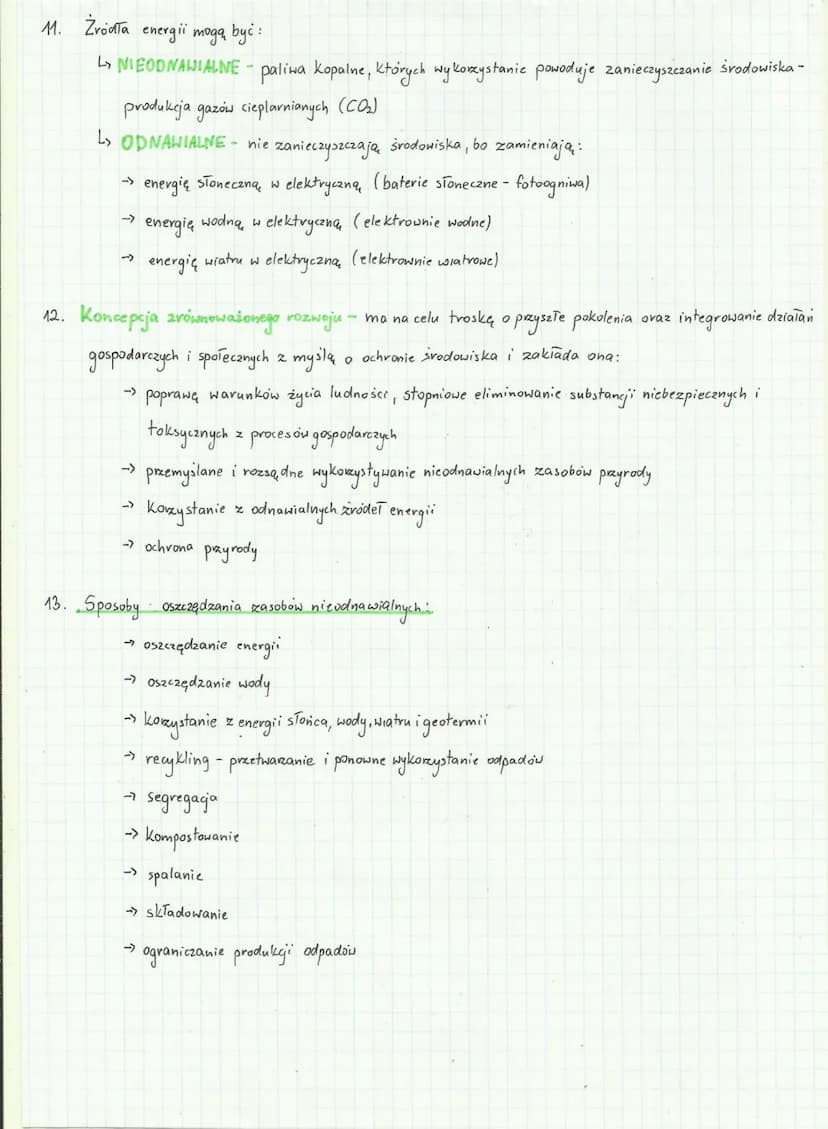 11. Źródła energii mogą być:
↳ NIEODNAWIALNE - paliwa kopalne, których wykorzystanie powoduje zanieczyszczanie środowiska -
produkcja gazów cieplarnianych (CO₂)
↳ ODNAWIALNE - nie zanieczyszczają środowiska, bo zamieniają:
→ energię słoneczną w elektryczną (baterie słoneczne - fotoogniwa)
→ energię wodną w elektryczną (elektrownie wodne)
→ energię wiatru w elektryczną (elektrownie wiatrowe)
12. Koncepcja zrównoważonego rozwoju - ma na celu troskę o przyszłe pokolenia oraz integrowanie działań
gospodarczych i społecznych z myślą o ochronie środowiska i zakłada ona:
→ poprawę warunków życia ludności, stopniowe eliminowanie substancji niebezpiecznych i
toksycznych z procesów gospodarczych
→ przemyślane i rozsądne wykorzystywanie nieodnawialnych zasobów przyrody
→ korzystanie z odnawialnych źródeł energii
→ ochrona przyrody
13. Sposoby oszczędzania zasobów nieodnawialnych:
→ oszczędzanie energii
→ oszczędzanie wody
→ korzystanie z energii słońca, wody, wiatru i geotermii
→ recykling - przetwarzanie i ponowne wykorzystanie odpadów
→ segregacja
→ kompostowanie
→ spalanie
→ składowanie
→ ograniczanie produkcji odpadów